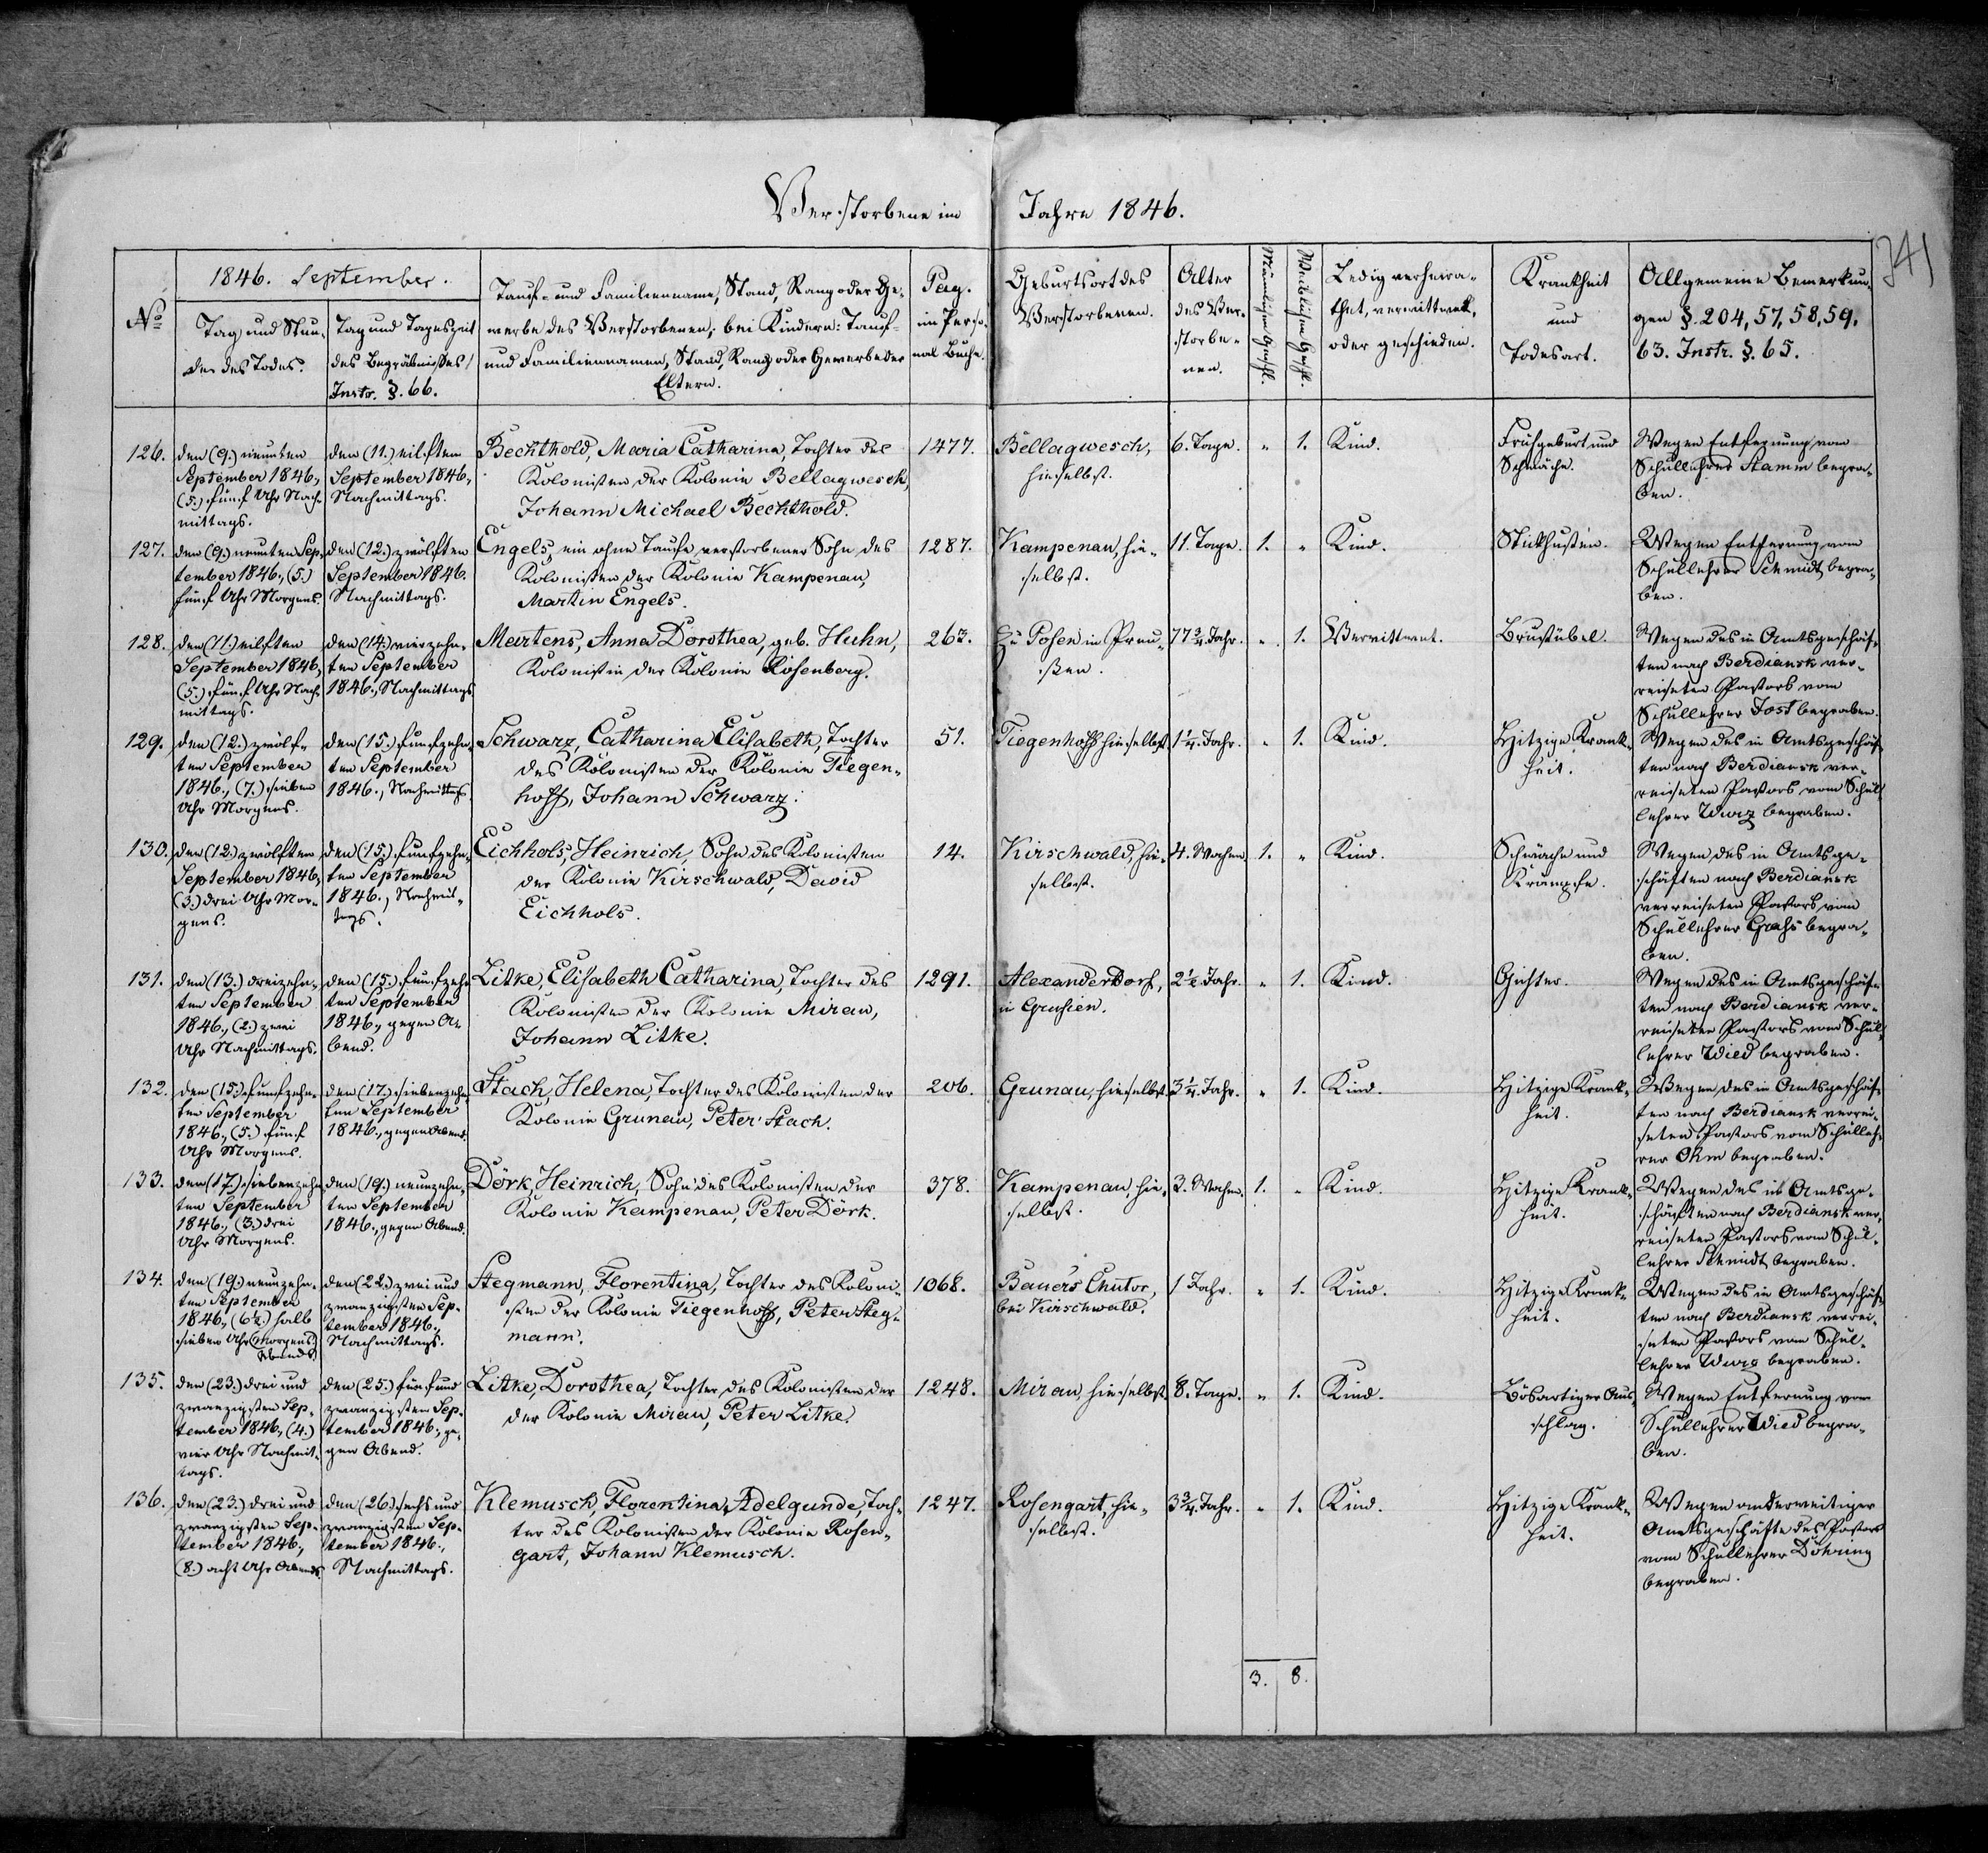 Verstorbene im Jahre 1846.
341
No
1846. September.
Tag und Stun-
de des Todes.
Tag und Tageszeit
des Begräbnisses/
Instr. §. 66.
Tauf- und Familienname, Stand, Rang oder Ge-
werbe des Verstorbenen; bei Kindern: Tauf-
und Familiennamen, Stand, Rang oder Gewerbe der
Eltern.
Pag.
im Perso-
nal Buche.
Geburtsort des
Verstorbenen.
Alter
des Ver-
storbe-
nen.
Männlichen Geschl.
Weiblichen Geschl.
Ledig verheira-
thet, verwittwet,
oder geschieden.
Krankheit
und
Todesart.
Allgemeine Bemerkun-
gen §. 204, 57, 58, 59,
63. Instr. §. 65.
126.
den (9.) neunten
September 1846,
(5.) fünf Uhr Nach-
mittags.
den (11.) eilften
September 1846,
Nachmittags.
Bechthold, Maria Catharina, Tochter des
Kolonisten der Kolonie Bellagwesch,
Johann Michael Bechthold.
1477.
Bellagwesch,
hieselbst.
6. Tage.
" 1.
Kind.
Frühgeburt und
Schwäche.
Wegen Entfernung vom
Schullehrer Stamm begra-
ben.
127.
den (9.) neunten Sep-
tember 1846, (5.)
fünf Uhr Morgens.
den (12.) zwölften
September 1846.
Nachmittags.
Engels, ein ohne Taufe verstorbener Sohn des
Kolonisten der Kolonie Kampenau,
Martin Engels.
1287.
Kampenau, hie-
selbst.
11. Tage.
1. "
Kind.
Stickhusten.
Wegen Entfernung vom
Schullehrer Schmidt begra-
ben.
128.
den (11.) eilften
September 1846,
(5.) fünf Uhr Nach-
mittags.
den (14.) vierzehn-
ten September
1846., Nachmittags
Martens, Anna Dorothea, geb. Huhn,
Kolonistin der Kolonie Rosenberg.
263.
Zu Posen in Preu-
ßen.
77 3/4. Jahr.
" 1.
Verwittwet.
Brustübel.
Wegen des in Amtsgeschäf-
ten nach Berdiansk ver-
reiseten Pastors vom
Schullehrer Jost begraben.
129.
den (12.) zwölf-
ten September
1846., (7.) sieben
Uhr Morgens.
den (15.) fünfzehn-
ten September
1846., Nachmittags.
Schwarz, Catharina Elisabeth, Tochter
des Kolonisten der Kolonie Tiegen-
hoff, Johann Schwarz.
51.
Tiegenhoff hieselbst
1 1/4. Jahr.
" 1.
Kind.
Hitzige Krank-
heit.
Wegen des in Amtsgeschäf-
ten nach Berdiansk ver-
reiseten Pastors vom Schul-
lehrer Wurz begraben.
130.
den (12.) zwölften
September 1846,
(3.) drei Uhr Mor-
gens.
den (15.) fünfzehn-
ten September
1846., Nachmit-
tags.
Eichhols, Heinrich, Sohn des Kolonisten
der Kolonie Kirschwald, David
Eichhols.
14.
Kirschwald, hie-
selbst.
4. Wochen
1. "
Kind.
Schwäche und
Krämpfe.
Wegen des in Amtsge-
schäften nach Berdiansk
verreiseten Pastors vom
Schullehrer Grahs begra-
ben.
131.
den (13.) dreizehn-
ten September
1846., (2.) zwei
Uhr Nachmittags.
den (15.) fünfzehn-
ten September
1846., gegen A-
bend.
Litke, Elisabeth Catharina, Tochter des
Kolonisten der Kolonie Mirau,
Johann Litke.
1291.
Alexanderdorf,
in Grusien.
2 1/2 Jahr.
" 1.
Kind.
Gichter.
Wegen des in Amtsgeschäf-
ten nach Berdiansk ver-
reiseten Pastors vom Schul-
lehrer Wied begraben.
132.
den (15.) fünfzehn-
ten September
1846., (5.) fünf
Uhr Morgens.
den (17.) siebenzehn-
ten September
1846., gegen Abend.
Stach, Helena, Tochter des Kolonisten der
Kolonie Grunau, Peter Stach.
206.
Grunau, hieselbst.
3 1/4. Jahr.
" 1.
Kind.
Hitzige Krank-
heit.
Wegen des in Amtsgeschäf-
ten nach Berdiansk verrei-
seten Pastors vom Schulleh-
rer Ohm begraben.
133.
den (17.) siebenzehn-
ten September
1846., (3.) drei
Uhr Morgens.
den (19.) neunzehn-
ten September
1846., gegen Abend.
Dörk, Heinrich, Sohn des Kolonisten der
Kolonie Kampenau, Peter Dörk.
378.
Kampenau, hie-
selbst.
3. Wochen.
1. "
Kind.
Hitzige Krank-
heit.
Wegen des in Amtsge-
schäften nach Berdiansk ver-
reiseten Pastors vom Schul-
lehrer Schmidt begraben.
134.
den (19.) neunzehn-
ten September
1846., (6 1/2.) halb
sieben Uhr (Morgens)
Abends.
den (22.) zwei und
zwanzigsten Sep-
tember 1846.,
Nachmittags.
Stegmann, Florentina, Tochter des Koloni-
sten der Kolonie Tiegenhoff, Peter Steg-
mann.
1068.
Bauers Chutor,
bei Kirschwald.
1 Jahr.
" 1.
Kind.
Hitzige Krank-
heit.
Wegen des in Amtsgeschäf-
ten nach Berdiansk verrei-
seten Pastors vom Schul-
lehrer Wurz begraben.
135.
den (23.) drei und
zwanzigsten Sep-
tember 1846., (4.)
vier Uhr Nachmit-
tags.
den (25.) fünf und
zwanzigsten Sep-
tember 1846., ge-
gen Abend.
Litke, Dorothea, Tochter des Kolonisten der
der Kolonie Mirau, Peter Litke.
1248.
Mirau, hieselbst.
8. Tage.
" 1.
Kind.
Bösartiger Aus-
schlag.
Wegen Entfernung vom
Schullehrer Wied begra-
ben.
136.
den (23.) drei und
zwanzigsten Sep-
tember 1846.,
(8.) acht Uhr Abends.
den (26.) sechs und
zwanzigsten Sep-
tember 1846.,
Nachmittags.
Klemusch, Florentina Adelgunde, Toch-
ter des Kolonisten der Kolonie Rosen-
gart, Johann Klemusch.
1247.
Rosengart, hie-
selbst.
3 3/4. Jahr.
" 1.
Kind.
Hitzige Krank-
heit.
Wegen anderweitiger
Amtsgeschäfte des Pastors
vom Schullehrer Döhring
begraben.
3. 8.